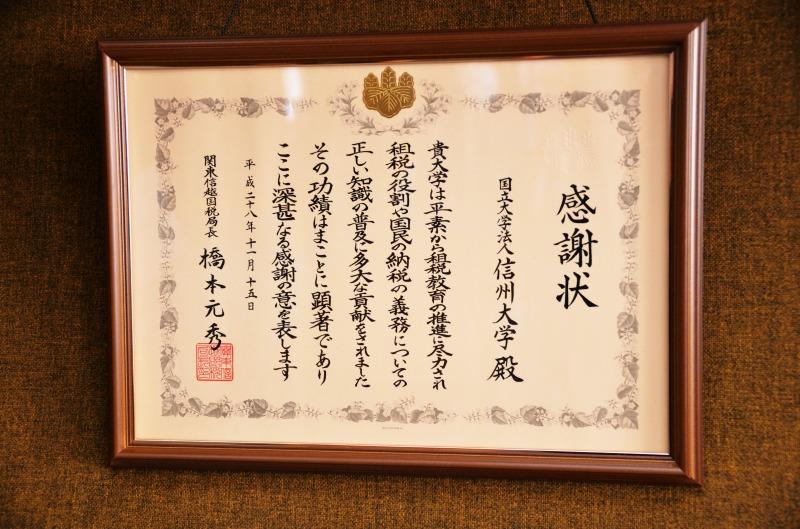 感謝状
国立大学法人 信州大学 殿
貴大学は平素から租税教育の推進に尽力され
租税の役割や国民の納税の義務についての
正しい知識の普及に多大な貢献をされました
その功績はまことに顕著であり
ここに深甚なる感謝の意を表します
平成二十八年十一月十五日
関東信越国税局長 橋本元秀